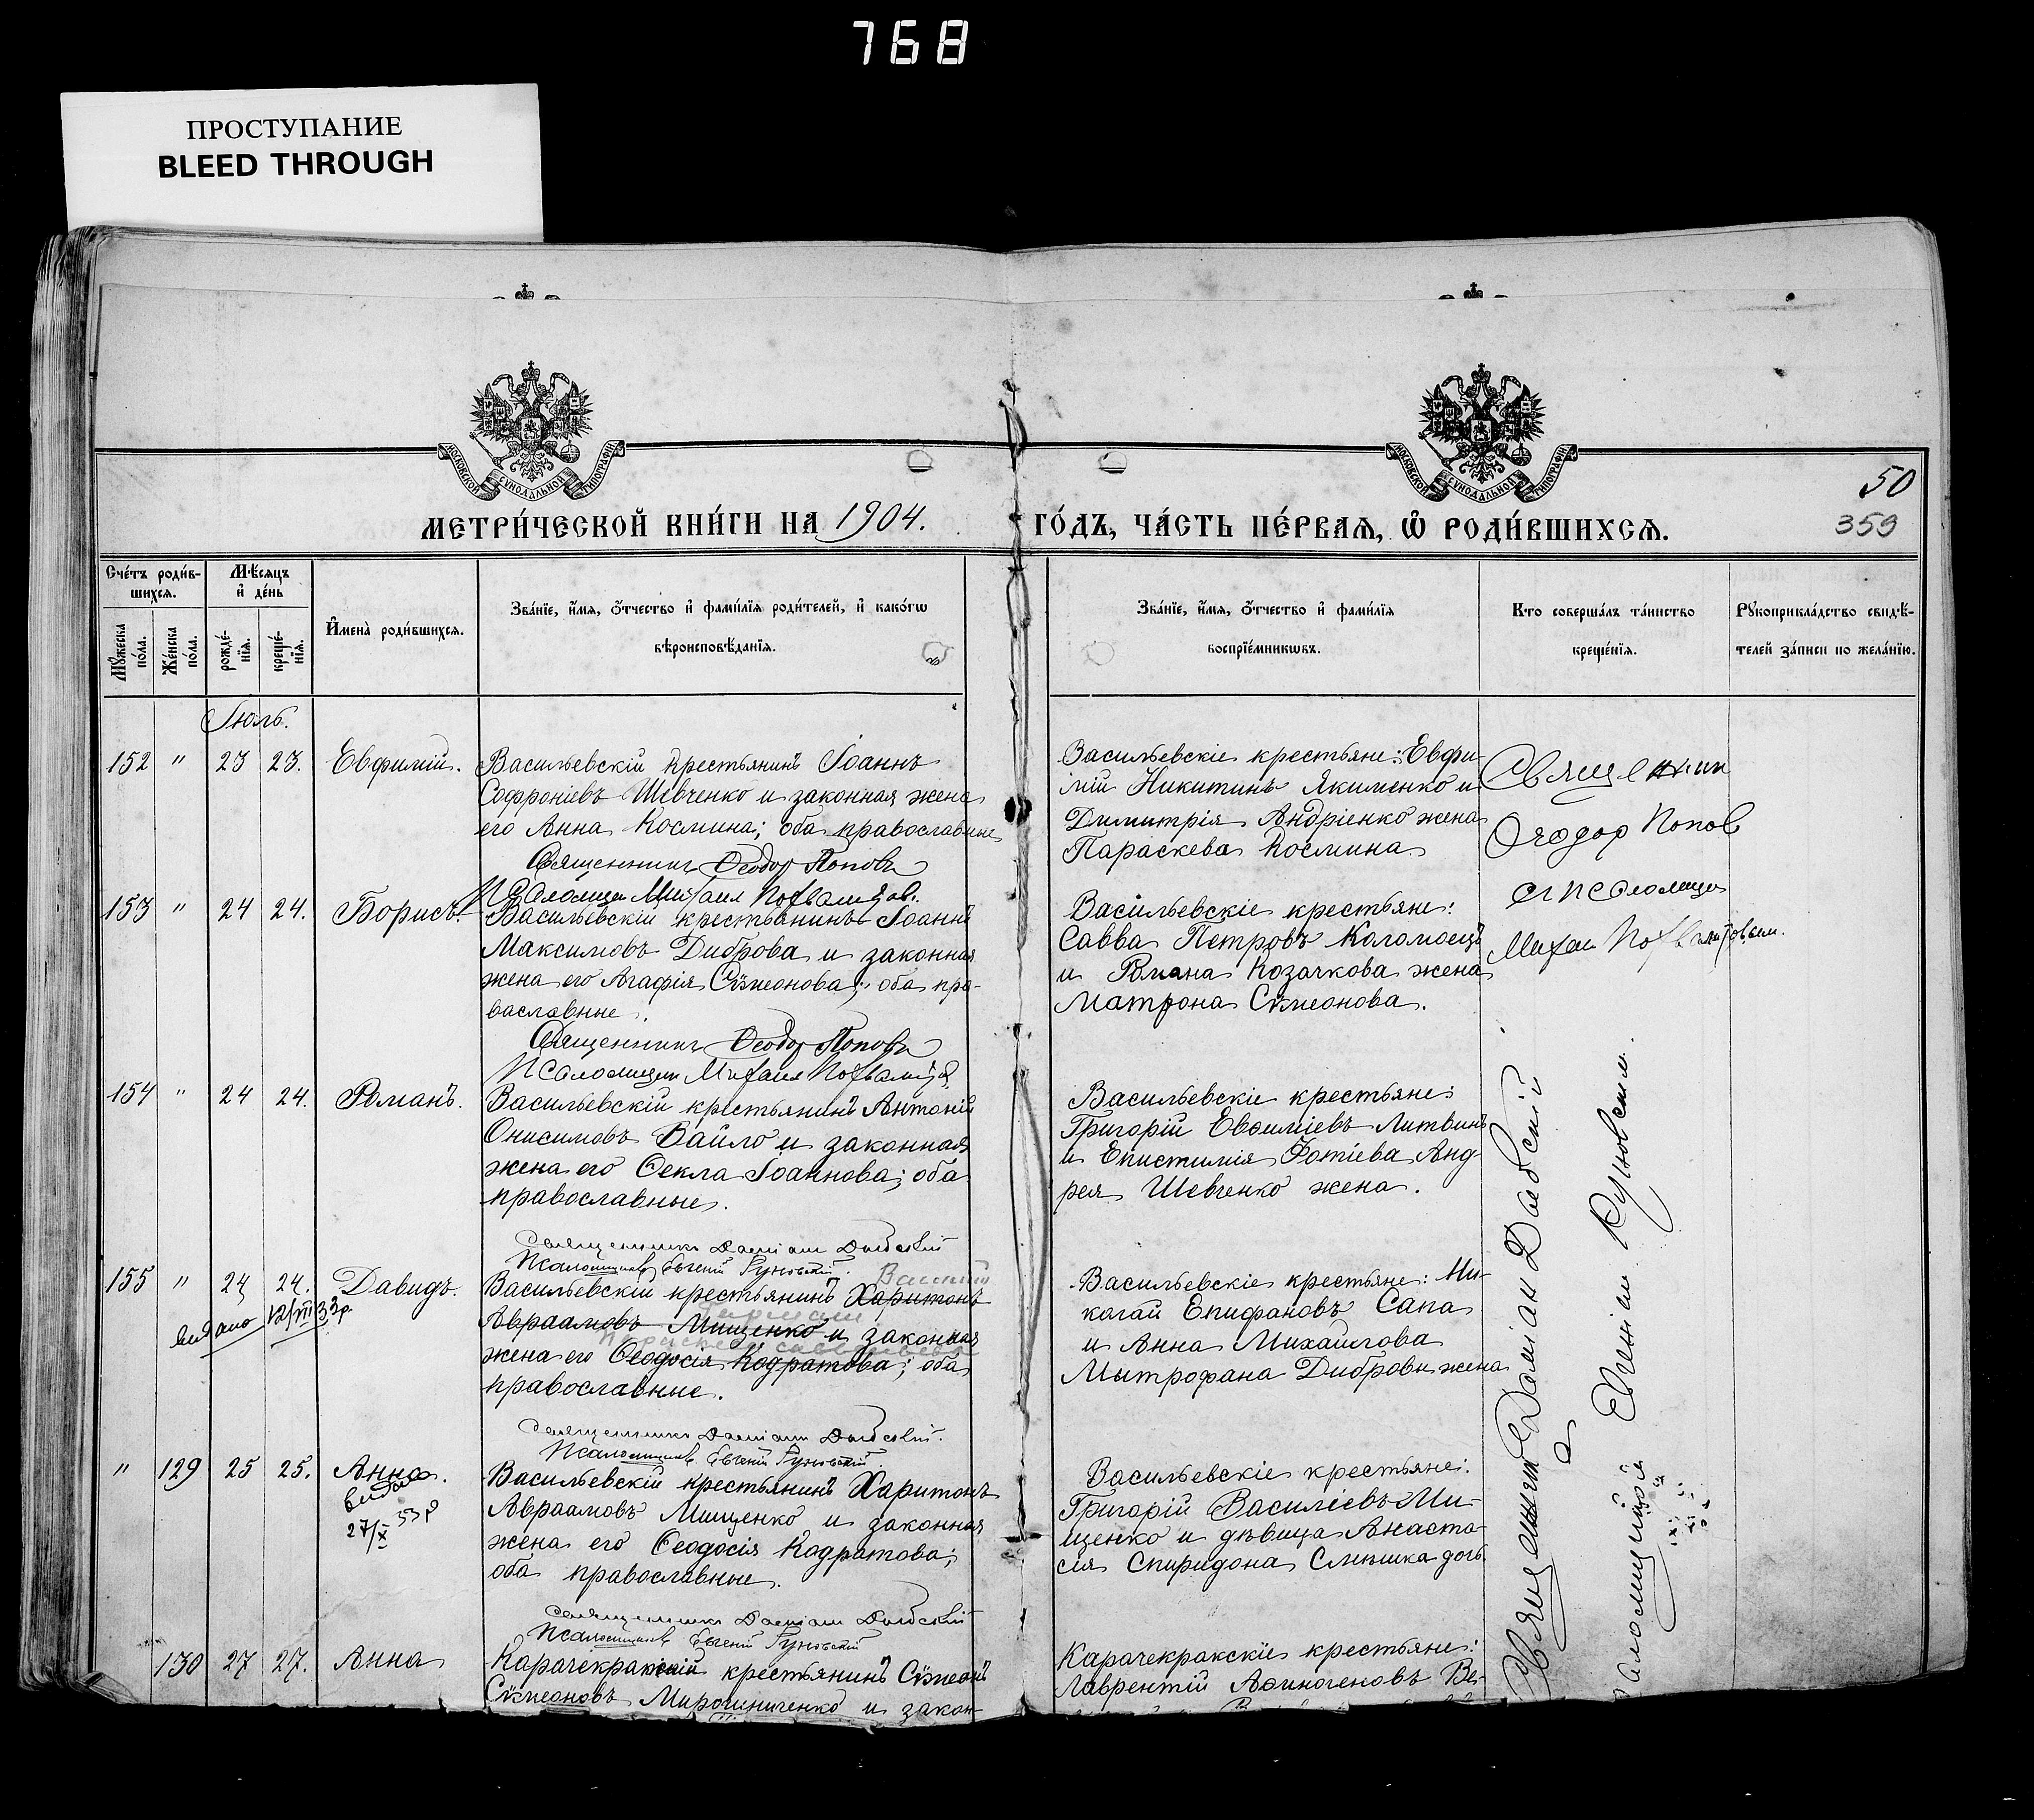 768
ПРОСТУПАНИЕ
BLEED THROUGH
МОСКОВСКОЙ СѴНОДАЛЬНОЙ ТИПОГРАФІИ
МОСКОВСКОЙ СѴНОДАЛЬНОЙ ТИПОГРАФІИ
50
359
МЕТРИ́ЧЕСКОЙ КНИ́ГИ НА 1904. ГО́ДЪ, ЧА́СТЬ ПЕ́РВАѦ, Ѡ҆ РОДИ́ВШИХСѦ.
Сче́тъ роди́вшихсѧ.
Мꙋ́жеска по́ла.
Же́нска по́ла.
Мѣ́сѧцъ и҆ де́нь
рожде́нїѧ.
креще́нїѧ.
И҆мена̀ роди́вшихсѧ.
Зва́нїе, и҆́мѧ, ѻ҆́тчество и҆ фами́лїѧ роди́телей, и҆ како́гѡ
вѣроисповѣ́данїѧ.
Зва́нїе, и҆́мѧ, ѻ҆́тчество и҆ фами́лїѧ
воспрїе́мникѡвъ.
Кто соверша́лъ та́инство
креще́нїѧ.
Рꙋкоприкла́дство свидѣ́-
телей за́писи по жела́нїю.
Іюль.
152 " 23 23. Евфимій.
Васильевскій крестьянинъ Іоаннъ
Софроніевъ Шевченко и законная жена
его Анна Космина; оба православные
Священникъ Ѳеодоръ Поповъ
Псаломщик Михаил
Васильевскіе крестьяне: Евфи-
мій Никитинъ Якименко и
Димитрія Андріенко жена
Параскева Космина.
Священник
Ѳеодор Попов
с псаломщ
Михаи
153 " 24 24. Борисъ.
Васильевскій крестьянинъ Іоаннъ
Максимовъ Диброва и законная
жена его Агафія Сѵмеонова; оба пра-
вославные.
Священникъ Ѳеодоръ Поповъ
Псаломщик Михаил
Васильевскіе крестьяне:
Савва Петровъ Коломоецъ
и Романа Козачкова жена
Матрона Сѵмеонова.
154 " 24 24. Романъ.
Васильевскій крестьянинъ Антоній
Онисимовъ Вайло и законная
жена его Ѳекла Іоаннова; оба
православные.
Священникъ Даміанъ
Псаломщикъ Евгеній
Васильевскіе крестьяне:
Григорій Евѳиміевъ Литвинъ
и Епистимія Фотіева Анд-
рея Шевченко жена.
155 " 24 24. Давидъ.
видано 12/VIII 33 р.
Васильевскій крестьянинъ Харитонъ
Авраамовъ Мищенко и законная
жена его Ѳеодосія Кодратова; оба
православные.
Священникъ Даміанъ
Псаломщикъ Евгеній
Васильевскіе крестьяне: Ни-
колай Епифановъ Сапа
и Анна Михайлова
Мытрофана Дибровы жена
" 129 25 25. Анна.
видано
27/X 33 р
Васильевскій крестьянинъ Харитонъ
Авраамовъ Мищенко и законная
жена его Ѳеодосія Кодратова;
оба православные.
Священникъ Даміанъ
Псаломщикъ Евгеній
Васильевскіе крестьяне:
Григорій Василіевъ Ми-
щенко и дѣвица Анаста-
сія Спиридона Смышка дочь.
Священник Даміан
псаломщиком Евгеніем
130 27 27. Анна
Карачекракскій крестьянинъ Сѵмеонъ
Сѵмеоновъ Мирошниченко и закон-
Карачекракскіе крестьяне:
Лаврентій Аѳиногеновъ Ве-